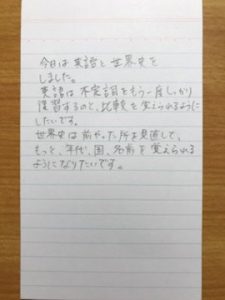 今日は英語と世界史を
しました。
英語は不定詞をもう一度しっかり
復習するのと、比較を覚えられるように
したいです。
世界史は前やった所を見直して、
もっと、年代、国、名前を覚えられる
ようになりたいです。